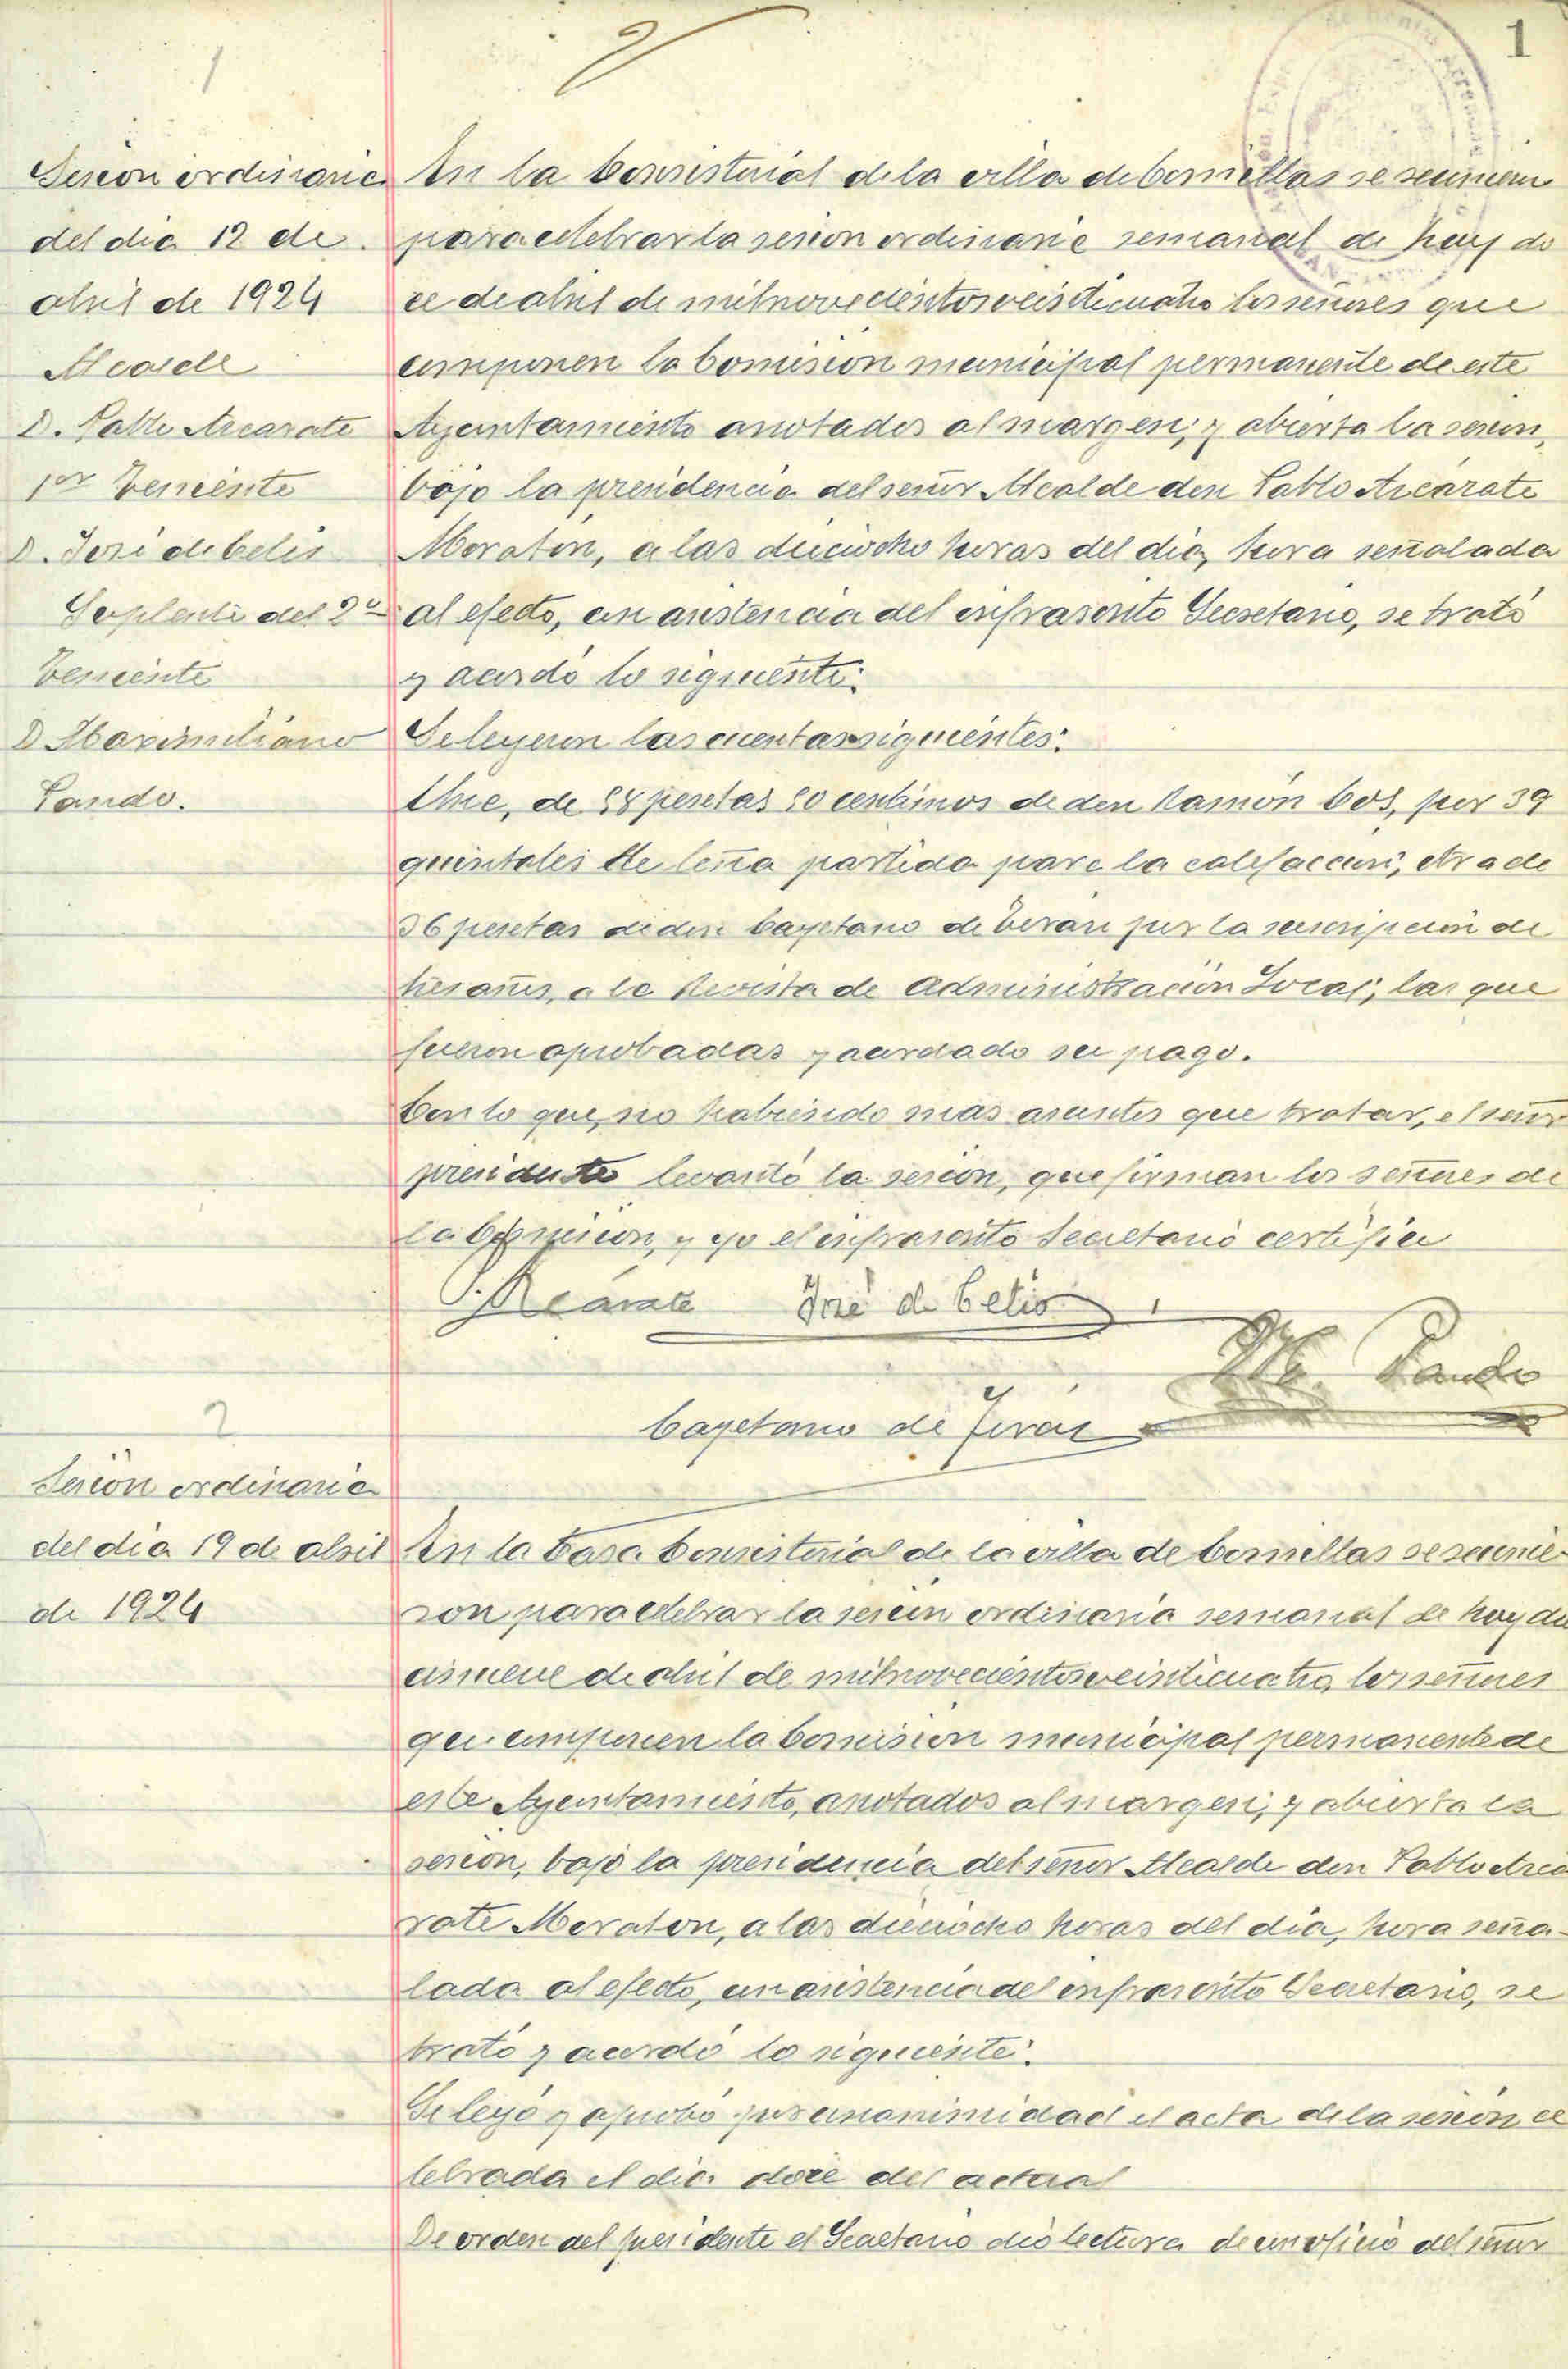 1
1
Sesión ordinaria
del dia 12 de
abril de 1924
Alcalde
D. Pablo Arcarate
1er Teniente
D. José de Celis
Suplente del 2º
Teniente
D Maximiliano
Pando.
En la Consistorial de la villa de Comillas se reunieron
para celebrar la sesion ordinaria semanal de hoy do
ce de abril de mil novecientos veinticuatro los señores que
componen la Comisión municipal permanente de este
Ayuntamiento anotados al margen; y abierta la sesion,
bajo la presidencia del señor Alcalde don Pablo Arcárate
Moratón, a las dieciocho horas del dia, hora señalada
al efecto, con asistencia del infrascrito Secretario, se trató
y acordó lo siguiente:
Se leyeron las cuentas siguientes:
Una, de 58 pesetas 50 centimos de don Ramón Cos, por 39
quintales de leña partida para la calefacción; otra de
36 pesetas de don Cayetano de Terán por la suscripción de
tres años, a la Revista de Administración Local; las que
fueron aprobadas y acordado su pago.
Con lo que, no habiendo mas asuntos que tratar, el señor
presidente levantó la sesión, que firman los señores de
la Comision, y yo el infrascrito Secretario certifico
P. Arcárate José de Celis
M. Pando
Cayetano de Terán
2
Sesión ordinaria
del dia 19 de abril
de 1924
En la Casa Consistorial de la villa de Comillas se reunie-
ron para celebrar la sesión ordinaria semanal de hoy die
cinueve de abril de mil novecientos veinticuatro, los señores
que componen la Comision municipal permanente de
este Ayuntamiento, anotados al margen; y abierta la
sesion, bajo la presidencia del señor Alcalde don Pablo Arcá
rate Moraton, a las dieciocho horas del dia, hora seña-
lada al efecto, con asistencia del infrascrito Secretario, se
trató y acordó lo siguiente:
Se leyó y aprobó por unanimidad el acta de la sesión ce
lebrada el dia doce del actual
De orden del presidente el Secretario dió lectura de un oficio del señor